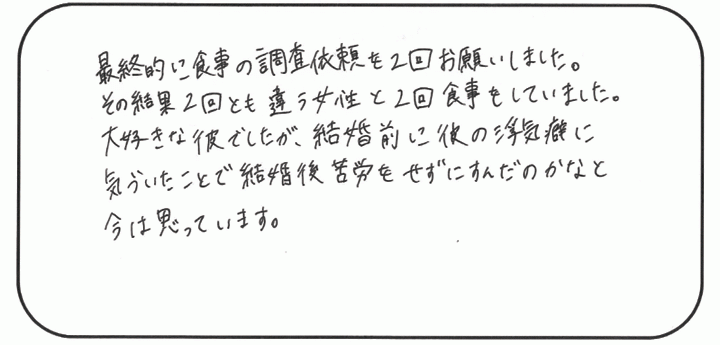 最終的に食事の調査依頼を2回お願いしました。
その結果2回とも違う女性と2回食事をしていました。
大好きな彼でしたが、結婚前に彼の浮気癖に
気づいたことで結婚後苦労をせずにすんだのかなと
今は思っています。